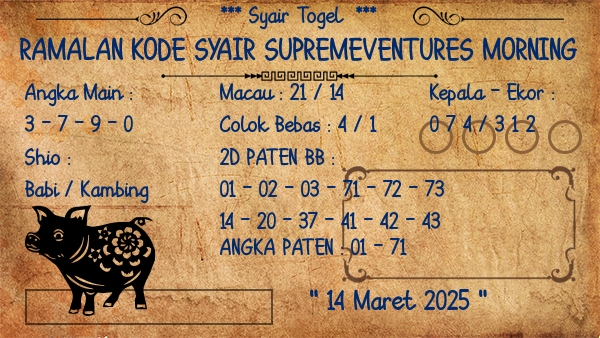 *** Syair Togel ***
RAMALAN KODE SYAIR SUPREMEVENTURES MORNING
Angka Main :
3 - 7 - 9 - 0
Shio :
Babi / Kambing
Macau : 21 / 14
Colok Bebas : 4 / 1
2D PATEN BB :
01 - 02 - 03 - 71 - 72 - 73
14 - 20 - 37 - 41 - 42 - 43
ANGKA PATEN : 01 - 71
Kepala - Ekor :
0 7 4 / 3 1 2
" 14 Maret 2025 "